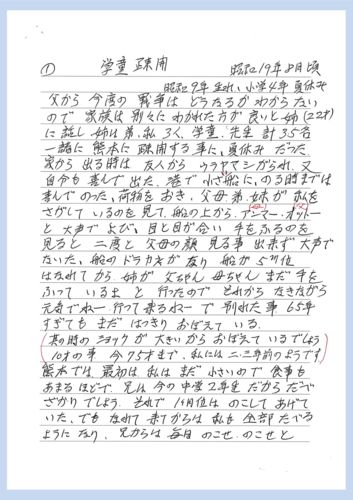 ① 学童疎開 昭和19年8月頃
昭和9年生れ、小学4年 夏休み
父から 今度の 戦争は どうなるか わからない
ので 家族は 別々に わかれた方が 良いと 姉(22才)
に話し 姉 弟 私 3人、学童、先生 計35名
一諸に 熊本に 疎開する事に、夏休み だった
家から 出る時は 友人から ウラヤマシがられ、又
自分も 喜んで出た、港で 小さ船に、のる時までは
喜んで のった、荷物をおき、父母 弟 妹が 私を
さがして いるのを 見て、船の上から、アンマー、オットー
と 大声で よび、目と目が合い 手をふるのを
見ると 二度と 父母の顔 見る事 出来ず 大声で
ないた、船の ドラカネが なり 船が 5、7位
はなれてから 姉が 父ちゃん 母ちゃん まだ 手を
ふって いるよ と 行ったので それから なきながら
元気でねー 行って来るねーで 別れた事 65年
すぎても まだ はっきり おぼえて いる。
(其の時の ショックが 大きいから おぼえて いるでしょう
10才の事 今75才まで、私には 二、三年前のようです)
熊本では、最初は 私は まだ 小さいので 食事も
あまるほどで、兄は 今の 中学2年生 だから たべ
ざかりでしょう、それで 1ヶ月位は のこして あげて
いた、でも なれて 来てからは 私も 全部 たべる
ように なり、兄からは 毎日 のこせ、のこせと